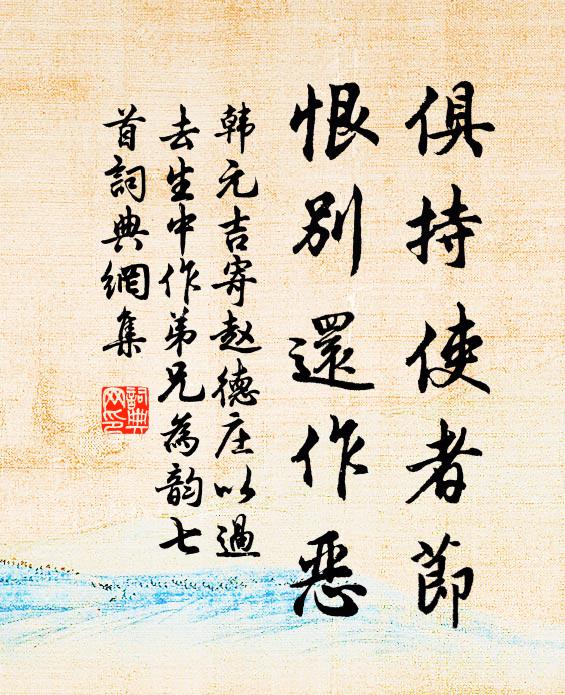 俱持使者節
恨別還作惡
韩元吉寄赵德庄以過
去生中作弟兄為韵七
首詞典網集
詞典
网印